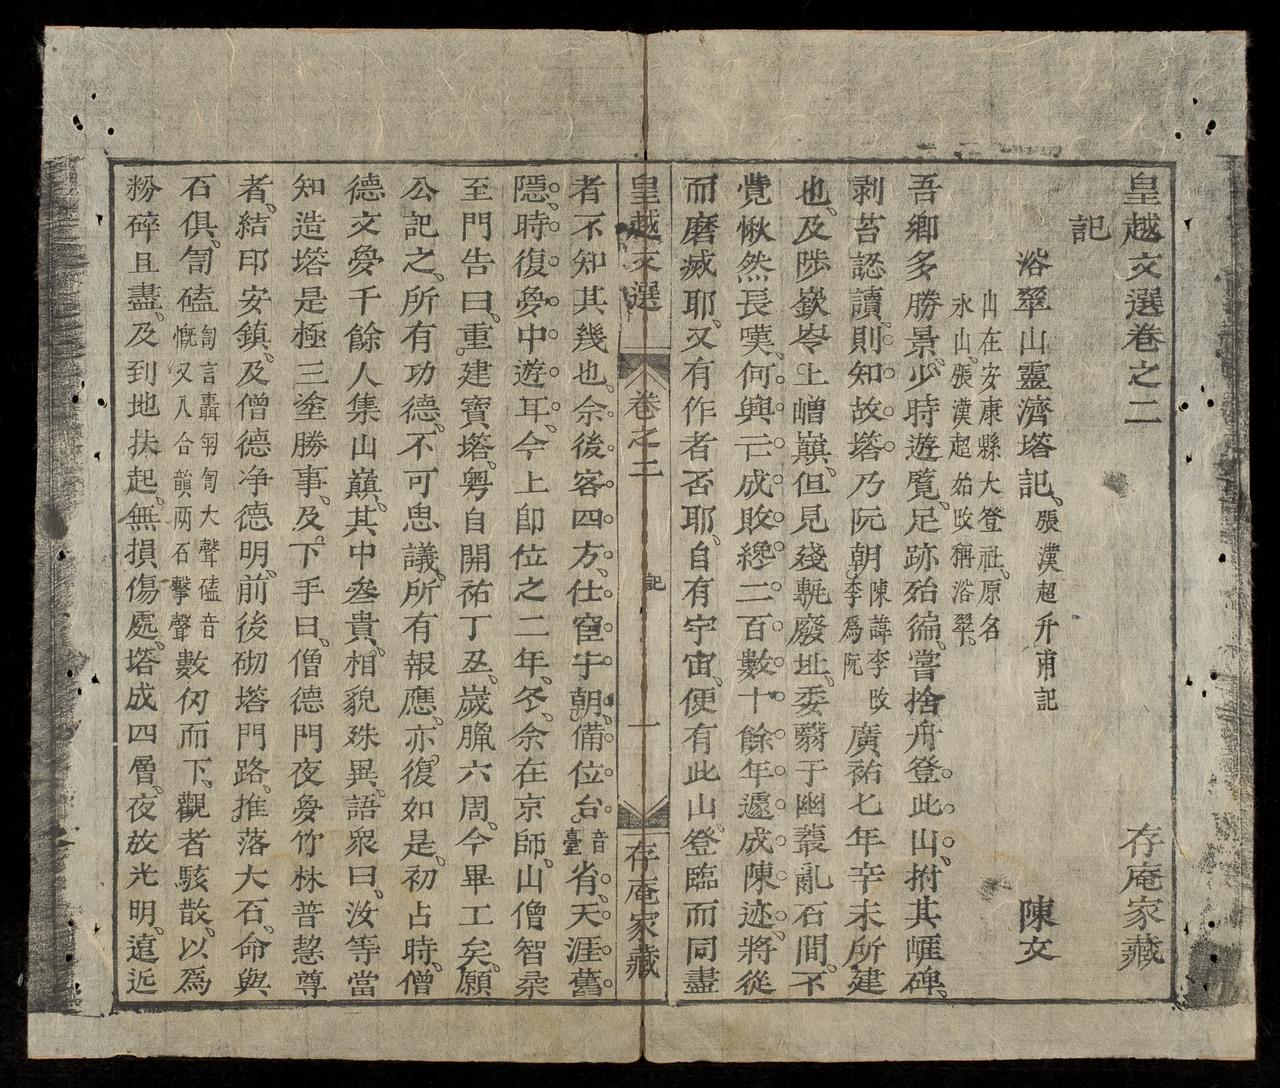 皇越文選卷之二　存庵家藏
記
浴翠山靈濟塔記張漢超升甫記　陳文
山在安康縣大登社原名
水山張漢超始改稱浴翠
吾鄉多勝景少時遊覽足跡殆徧嘗捨舟登此山拊其崕碑
剥苔認讀則知故塔乃阮朝陳諱李改李爲阮廣祐七年辛未所建
也及陟嶔岑上嶒巔但見殘甎廢址委翳于幽叢亂石間不
覺愀然長嘆何興亡成敗纔二百數十餘年遽成陳迹將從
而磨滅耶又有作者否耶自有宇宙便有此山登臨而同盡
皇越文選　卷之二　記　一　存庵家藏
者不知其幾也余後客四方仕宦于朝備位台音臺省天涯舊
隱時復夢中遊耳今上卽位之二年冬余在京師山僧智柔
至門告曰重建寶塔粤自開祐丁丑歲臘六周今畢工矣願
公記之所有功德不可思議所有報應亦復如是初占時僧
德文夢千餘人集山巔其中叄貴相貌殊異語衆曰汝等當
知造塔是極三塗勝事及下手日僧德門夜夢竹林普慧尊
者結印安鎮及僧德净德明前後砌塔門路推落大石命與
石俱訇磕訇言轟匉訇大聲磕音慨又八合韻兩石擊聲數仞而下觀者駭散以爲
粉碎且盡及到地扶起無損傷處塔成四層夜放光明遠近